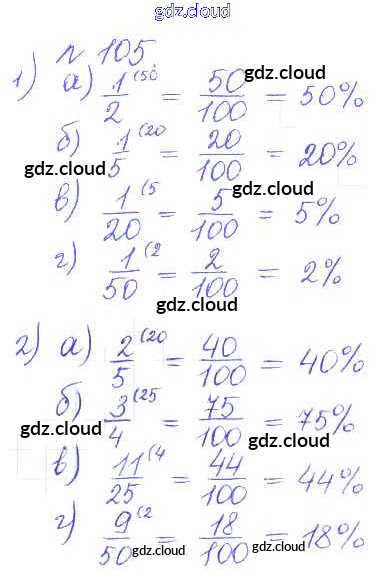 gdz.cloud
№ 105.
1) а) 1/2 (50 = 50/100 = 50%
gdz.cloud
б) 1/5 (20 = 20/100 = 20%
gdz.cloud gdz.cloud
в) 1/20 (5 = 5/100 = 5%
gdz.cloud
г) 1/50 (2 = 2/100 = 2%
gdz.cloud
2) а) 2/5 (20 = 40/100 = 40%
gdz.cloud
б) 3/4 (25 = 75/100 = 75%
gdz.cloud gdz.cloud
в) 11/25 (4 = 44/100 = 44%
gdz.cloud
г) 9/50 (2 = 18/100 = 18%
gdz.cloud gdz.cloud